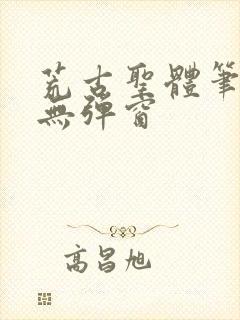 荒古聖體筆
無彈窗
高昌旭